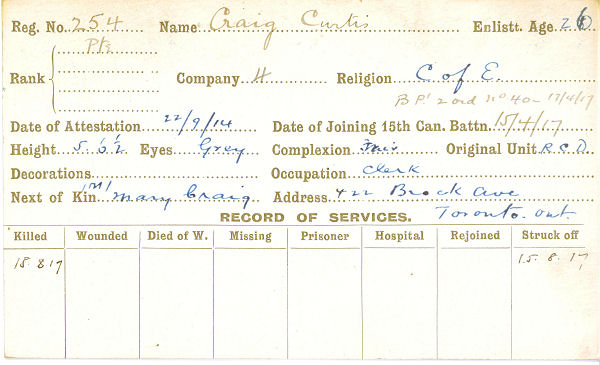 Reg. No. 254 Name Craig Curtis Enlistt. Age. 26
Rank Pte
Company 4 Religion C of E.
B P' 2 ord no 40 - 17/4/17
Date of Attestation 22/9/14 Date of Joining 15th Can. Battn. 15/4/17
Height 5' 6½ Eyes Grey Complexion Fair Original Unit R.C.D.
Decorations Occupation Clerk
Next of Kin (M) Mary Craig Address 422 Brock Ave
RECORD OF SERVICES. Toronto. Ont.
Killed Wounded Died of W. Missing Prisoner Hospital Rejoined Struck off
15 8 17 15. 8. 17